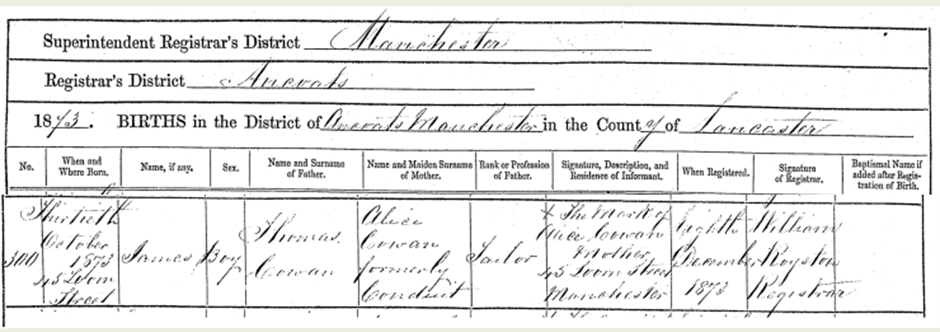 Superintendent Registrar's District Manchester
Registrar's District Ancoats
1873. BIRTHS in the District of Ancoats Manchester in the County of Lancaster
No.
When and
Where Born.
Name, if any.
Sex.
Name and Surname
of Father.
Name and Maiden Surname
of Mother.
Rank or Profession
of Father.
Signature, Description, and
Residence of Informant.
When Registered.
Signature
of Registrar.
Baptismal Name if
added after Regis-
tration of Birth.
300
Thirtieth
October
1873
45 Loom
Street
James
Boy
Thomas
Cowan
Alice
Cowan
formerly
Conduit
Tailor
X The Mark of
Alice Cowan
Mother
45 Loom Street
Manchester
Eighth
December
1873
William
Royston
Registrar